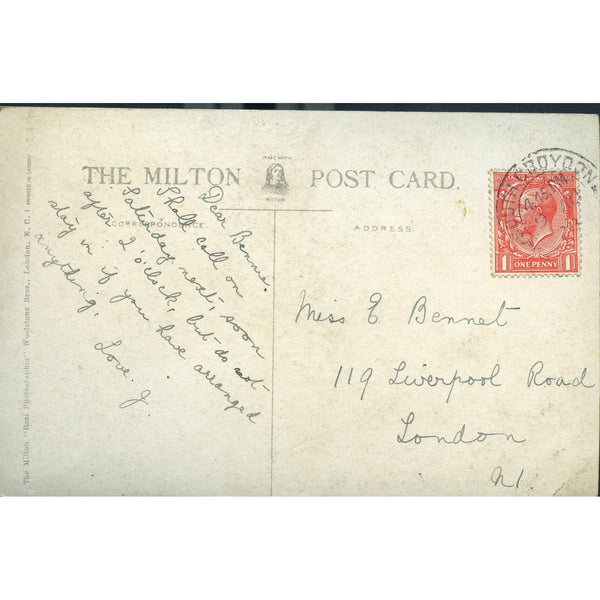 THE MILTON POST CARD.
TRADE MARK
MILTON
CORRESPONDENCE.
ADDRESS
Dear Bennie.
Shall call on
Saturday next, soon
after 2 o'clock, but do not
stay in if you have arranged
anything.
Love. J.
Miss E Bennet
119 Liverpool Road
London
N1.
SOUTH CROYDON
ONE PENNY
1 1
The Milton "Real Photographic" Woolstone Bros., London, E.C.1 PRINTED IN